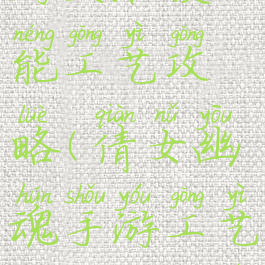 néng gōng yì gōng
能工艺攻
lüè qiàn nǚ yōu
略(倩女幽
hún shǒu yóu gōng yì
魂手游工艺